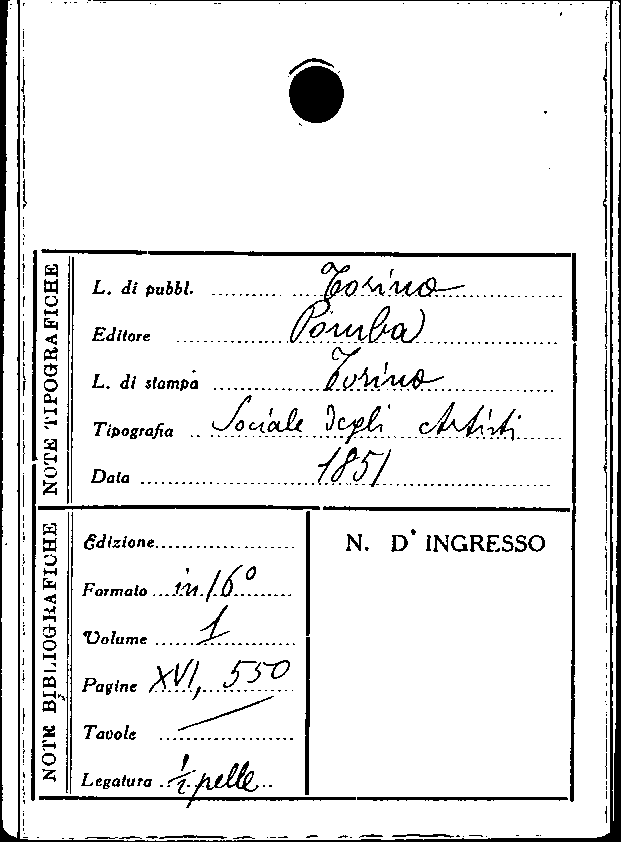 NOTE TIPOGRAFICHE
L. di pubbl. Torino
Editore Pomba
L. di stampa Torino
Tipografia Sociale degli Artisti
Data 1851
NOTE BIBLIOGRAFICHE
Edizione
Formato in 16º
Volume 1
Pagine XVI, 550
Tavole /
Legatura ½ pelle
N. D' INGRESSO